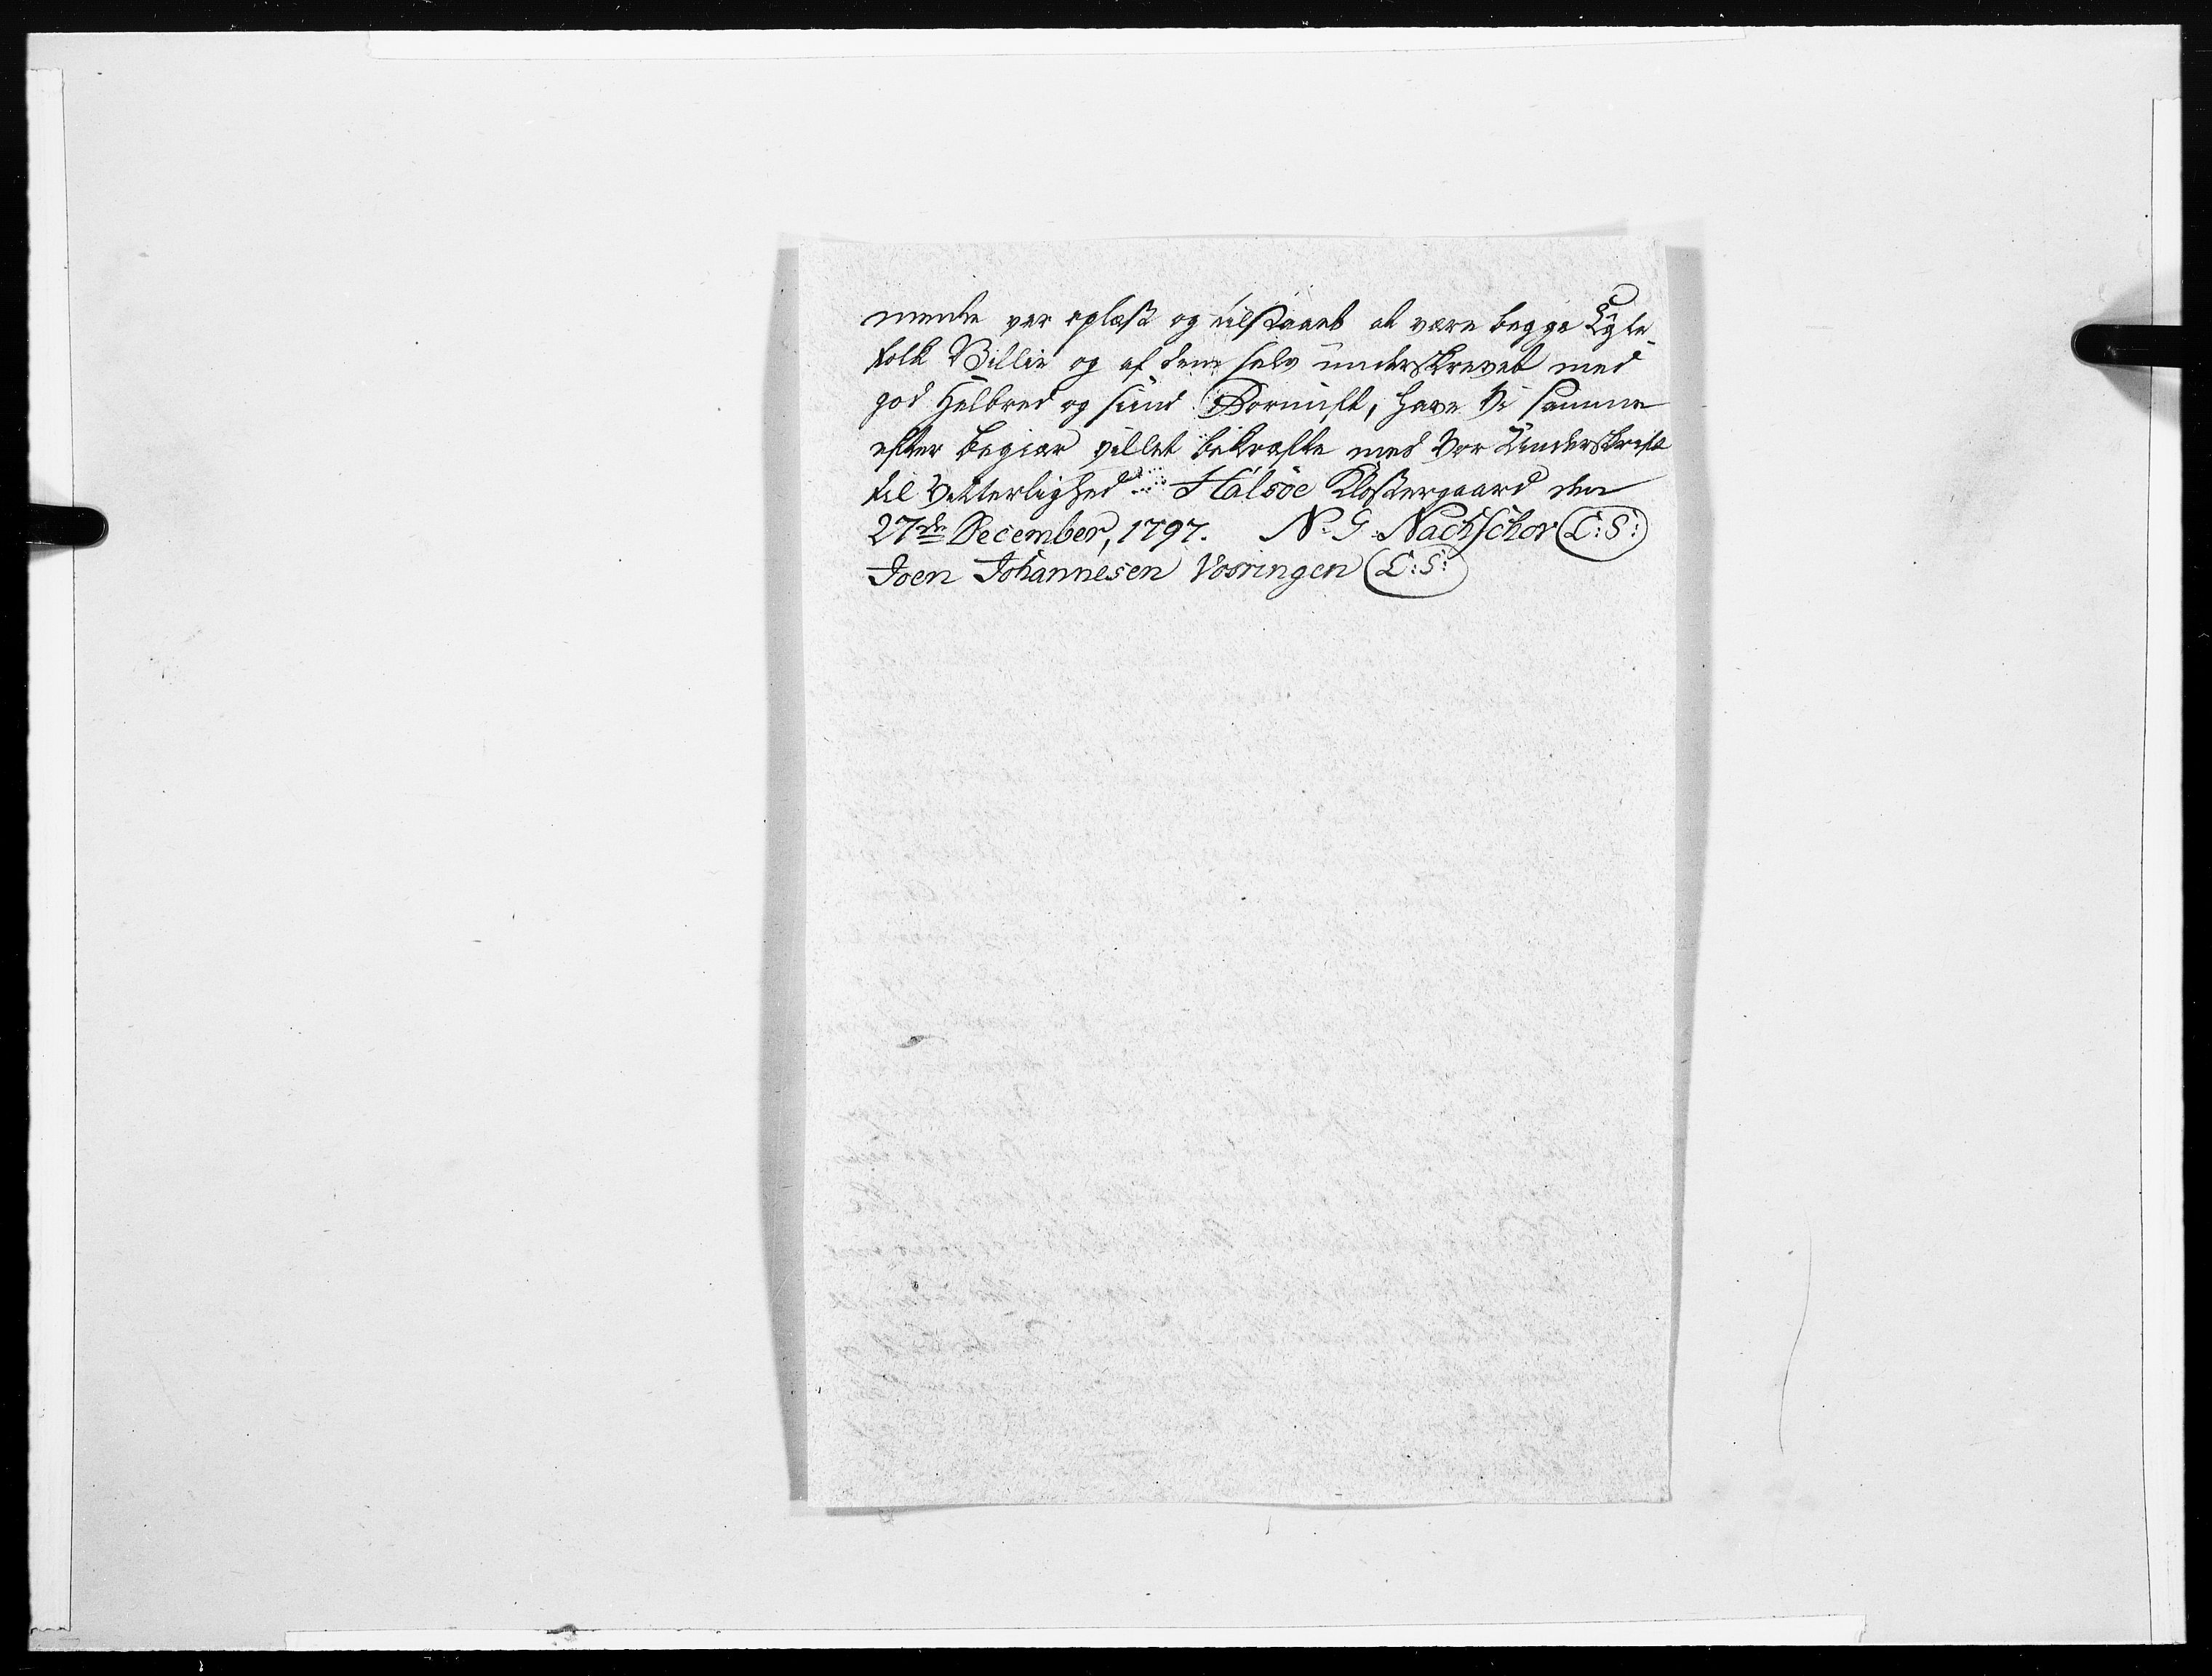 mente var oplæst og tilstaaet at være begge Ægte-
folk Villie og af dem selv underskrevet med
god Helbred og sund Fornuft, have Vi samme
efter begiær villet bekræfte med Vor Underskrift
til Vitterlighed Halsöe Klostergaard den
27de December, 1797. N. G. Nachschor (L:S:)
Joen Johannesen Vosringen (L:S:)